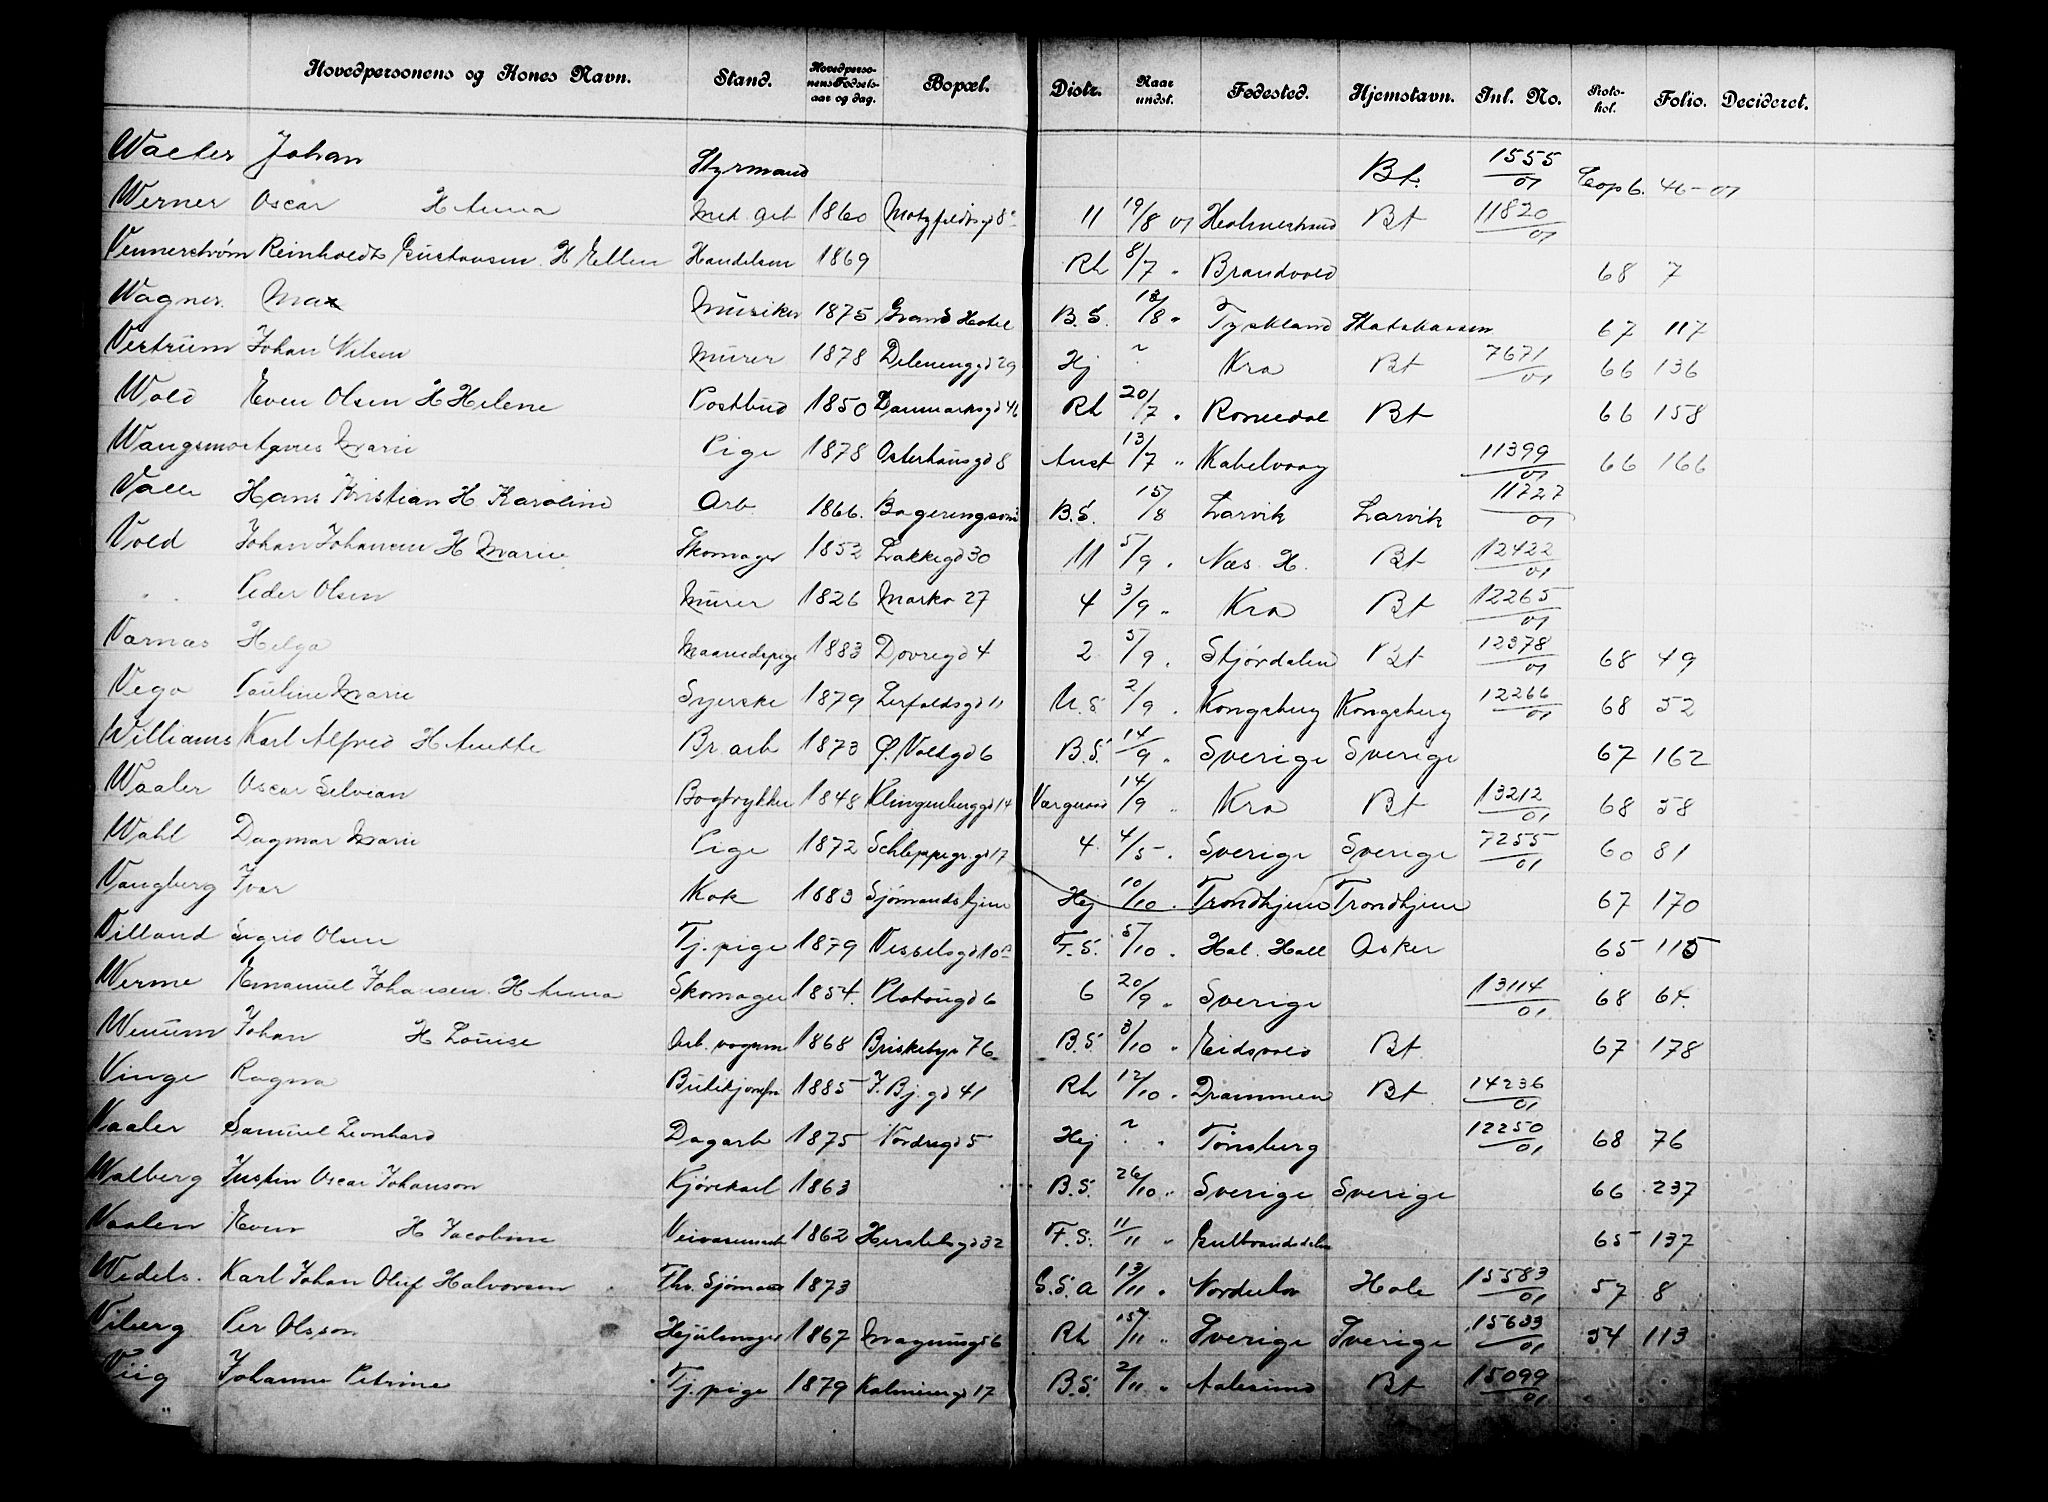 Hovedpersonens og Kones Navn. Stand. Hovedpersonens Fødselsaar og dag. Bopæl. Distr. Naar undst. Fødested. Hjemstavn. Inl. No. Protokol. Folio. Decideret.
Walter Johan Styrmand Bt. 1555/01 Cop 6. 46-01
Werner Oscar H Anna Met. arb 1860 Motzfeldtsgd 8 11 19/8 01 Holmestrand Bt 11820/01
Vennerstrøm Reinholdt Gustavsen H Ellen Handelsm 1869 Rh 8/7 " Brandvold 68 7
Wagner Max Musiker 1875 Grand Hotel B.S. 13/8 " Tyskland Statskassen 67 117
Vestrum Johan Nilsen Murer 1878 Delenenggd 29 Hj ? Kra Bt 7671/01 66 136
Wold Even Olsen H Helene Postbud 1850 Danmarksgd 46 Rh 20/7 " Romedal Bt 66 158
Wangsmo Agnes Marie Pige 1878 Osterhausgd 8 Anst 13/7 " Kabelvaag 11399/01 66 166
Valle Hans Kristian H Karoline Arb 1866. B.S. 15/8 Larvik Larvik 11727/01
Vold Johan Johansen H Marie Skomager 1852 Lakkegd 30 11 5/9 " Næs. H. Bt 12422/01
" " Peder Olsen Murer 1826 Markv 27 4 3/9 " Kra Bt 12265/01
Varnæs Helga Maanedspige 1883 Dovregd 4 2 5/9 " Stjørdalen Bt 12378/01 68 49
Vego Pauline Marie Syerske 1879 Lerfaldsgd 11 U.S 2/9 " Kongsberg Kongsberg 12266/01 68 52
Williams Karl Alfred H Anette Br. arb 1873 Ø. Voldgd 6 B.S. 14/9 " Sverige Sverige 67 162
Waaler Oscar Selvean Bogtrykker 1848 Klingenberggd 14 Værgeraad 14/9 " Kra Bt 13212/01 68 58
Wahl Dagmar Marie Pige 1872 Schleppegr. gd 17 4 4/5 " Sverige Sverige 7255/01 60 81
Vangberg Ivar Kok 1883 Sjømandshjem Hej 10/10 " Trondhjem Trondhjem 67 170
Villand Sigrid Olsen Tj. pige 1879 Vesselsgd 10 F.S. 5/10 " Hol. Hall Asker 65 115
Werme Emanuel Johansen H Anna Skomager 1854. Platougd 6 6 20/9 " Sverige 13114/01 68 64.
Wennum Johan H Louise Arb. vognm 1868 Briskebyv 76 B.S. 3/10 " Eidsvold Bt 67 178
Vinge Ragna Butikjomfr 1885 T. Bj. gd 41 Rh 12/10 " Drammen Bt 14236/01
Vaaler Samuel Leonhard Dagarb 1875 Nordregd 5 Hej ? " Tønsberg 12250/01 68 76
Walberg Justin Oscar Johanson Kjørekarl 1863 B.S. 26/10 " Sverige Sverige 66 237
Vaalen Even H Jacobine 1862 Herslebsgd 32 F.S. 11/11 " Gulbrandsdalen 65 137
Wedels. Karl Johan Oluf Halvorsen Fhv. Sjømand 1873 S.S.A 13/11 " Norderhov Hole 15583/01 57 8
Viberg Per Olsson Hjulmager 1867 Magnusgd 6 Rh 15/11 " Sverige Sverige 15633/01 54 113
Viig Johanne Petrine Tj. pige 1879 Kalmeyergd 17 B.S. 2/11 " Aalesund Bt 15099/01